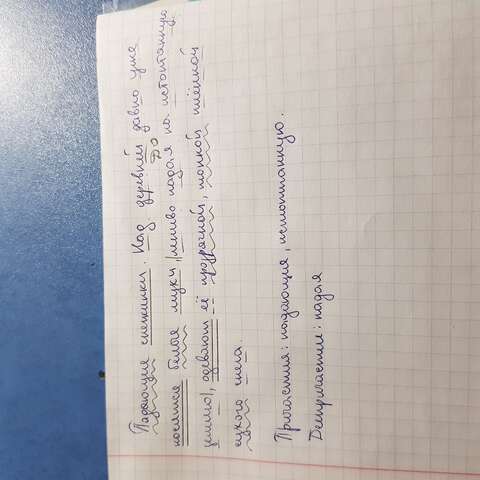 Падающие снежинки. Над деревней давно уже
ДО
носятся белые мухи, |лениво падая на истоптанную
землю|, одевают её прозрачной, тонкой плёнкой
сухого снега.
Причастия: падающие, истоптанную.
Деепричастие: падая